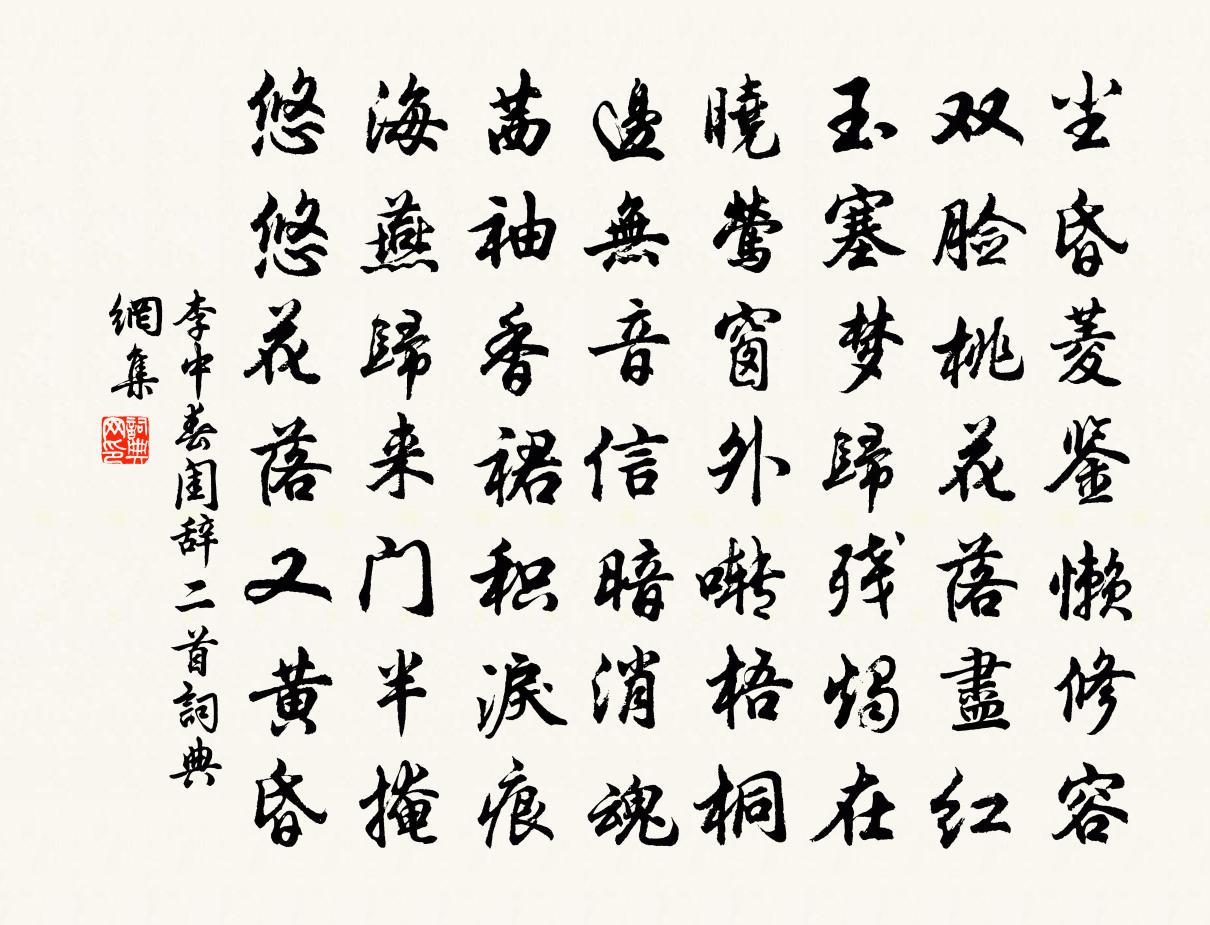 尘昏菱鉴懒修容
双脸桃花落盡红
玉塞梦歸残燭在
曉莺窗外囀梧桐
邊無音信暗消魂
茜袖香裙积淚痕
海燕歸来门半掩
悠悠花落又黄昏
李中春闺辞二首詞典
網集
詞典
网印